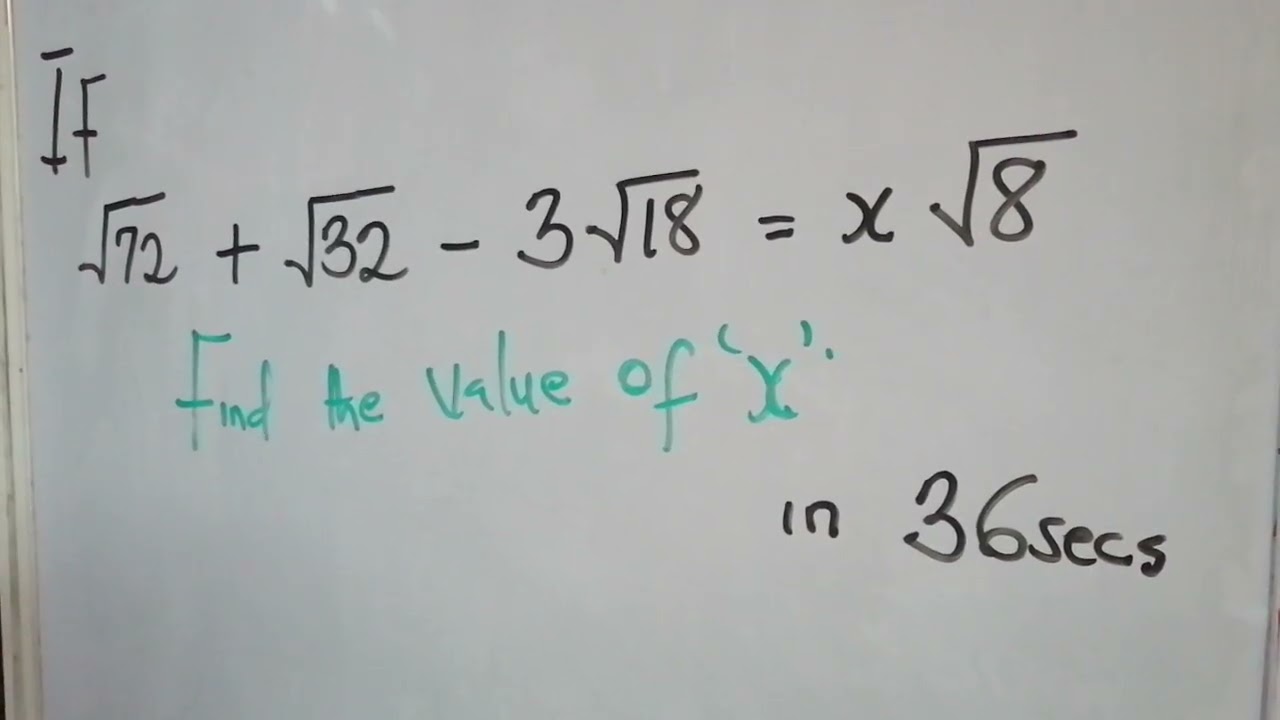 If
√72 + √32 - 3√18 = x √8
Find the value of 'x'.
in 36secs